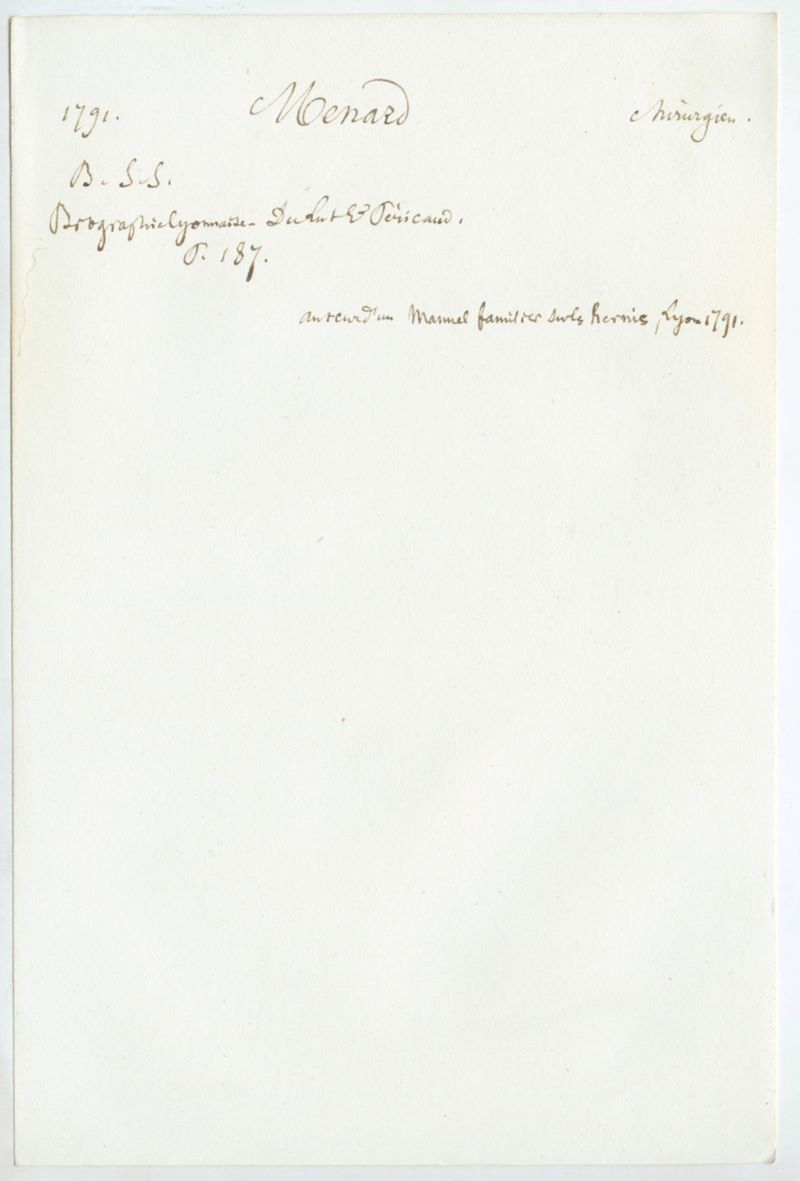 1791. Menard Chirurgien.
B. S. S.
Biographie lyonnaise - Du Lut & Péricaud.
P. 187.
auteur d'un Manuel familier sur les hernies, Lyon 1791.